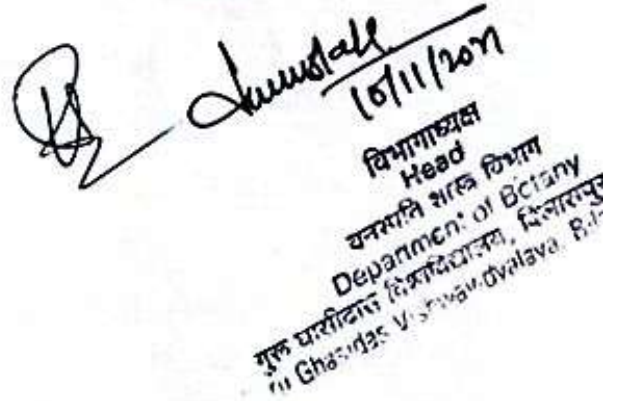 10/11/2021
विभागाध्यक्ष
Head
वनस्पति शास्त्र विभाग
Department of Botany
गुरू घासीदास विश्वविद्यालय, बिलासपुर
Ghasidas Vishwavidyalaya,